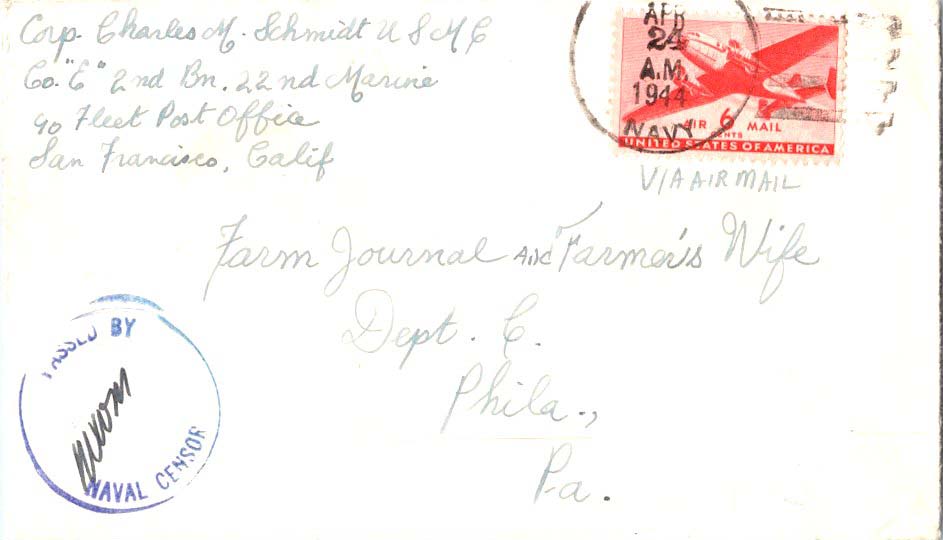 Corp. Charles M. Schmidt U S M C
Co. "E" 2nd Bn. 22nd Marine
go Fleet Post Office
San Francisco, Calif
APR
24
A.M.
1944
NAVY
AIR 6 MAIL
CENTS
UNITED STATES OF AMERICA
VIA AIR MAIL
Farm Journal AND Farmer's Wife
Dept. C.
Phila.,
Pa.
PASSED BY
NAVAL CENSOR